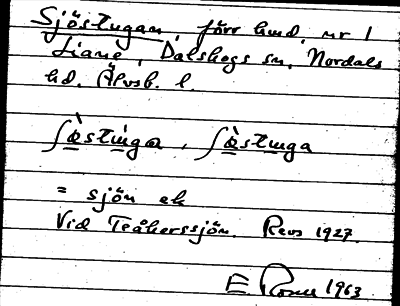 Sjöstugan, förr lmd. nr 1
Liane, Dalskogs sn, Nordals
hd. Älvsb. l.
ʃö̀stuga, ʃö̀stuga
= sjön ek
Vid Teåkerssjön. Revs 1927.
E Rosell 1963